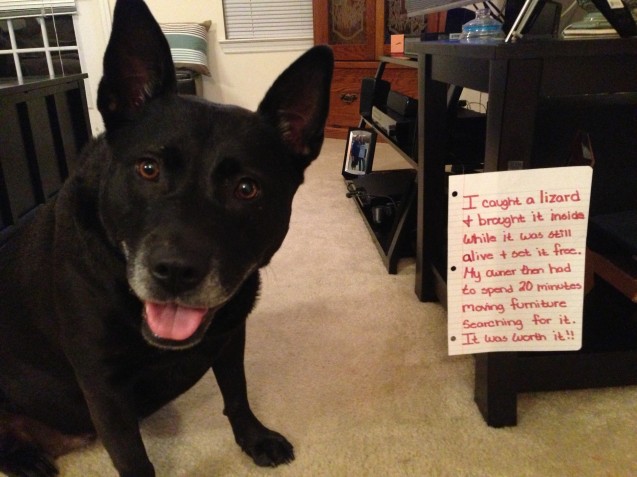 I caught a lizard
+ brought it inside
while it was still
alive + set it free.
My owner then had
to spend 20 minutes
moving furniture
searching for it.
It was worth it!!